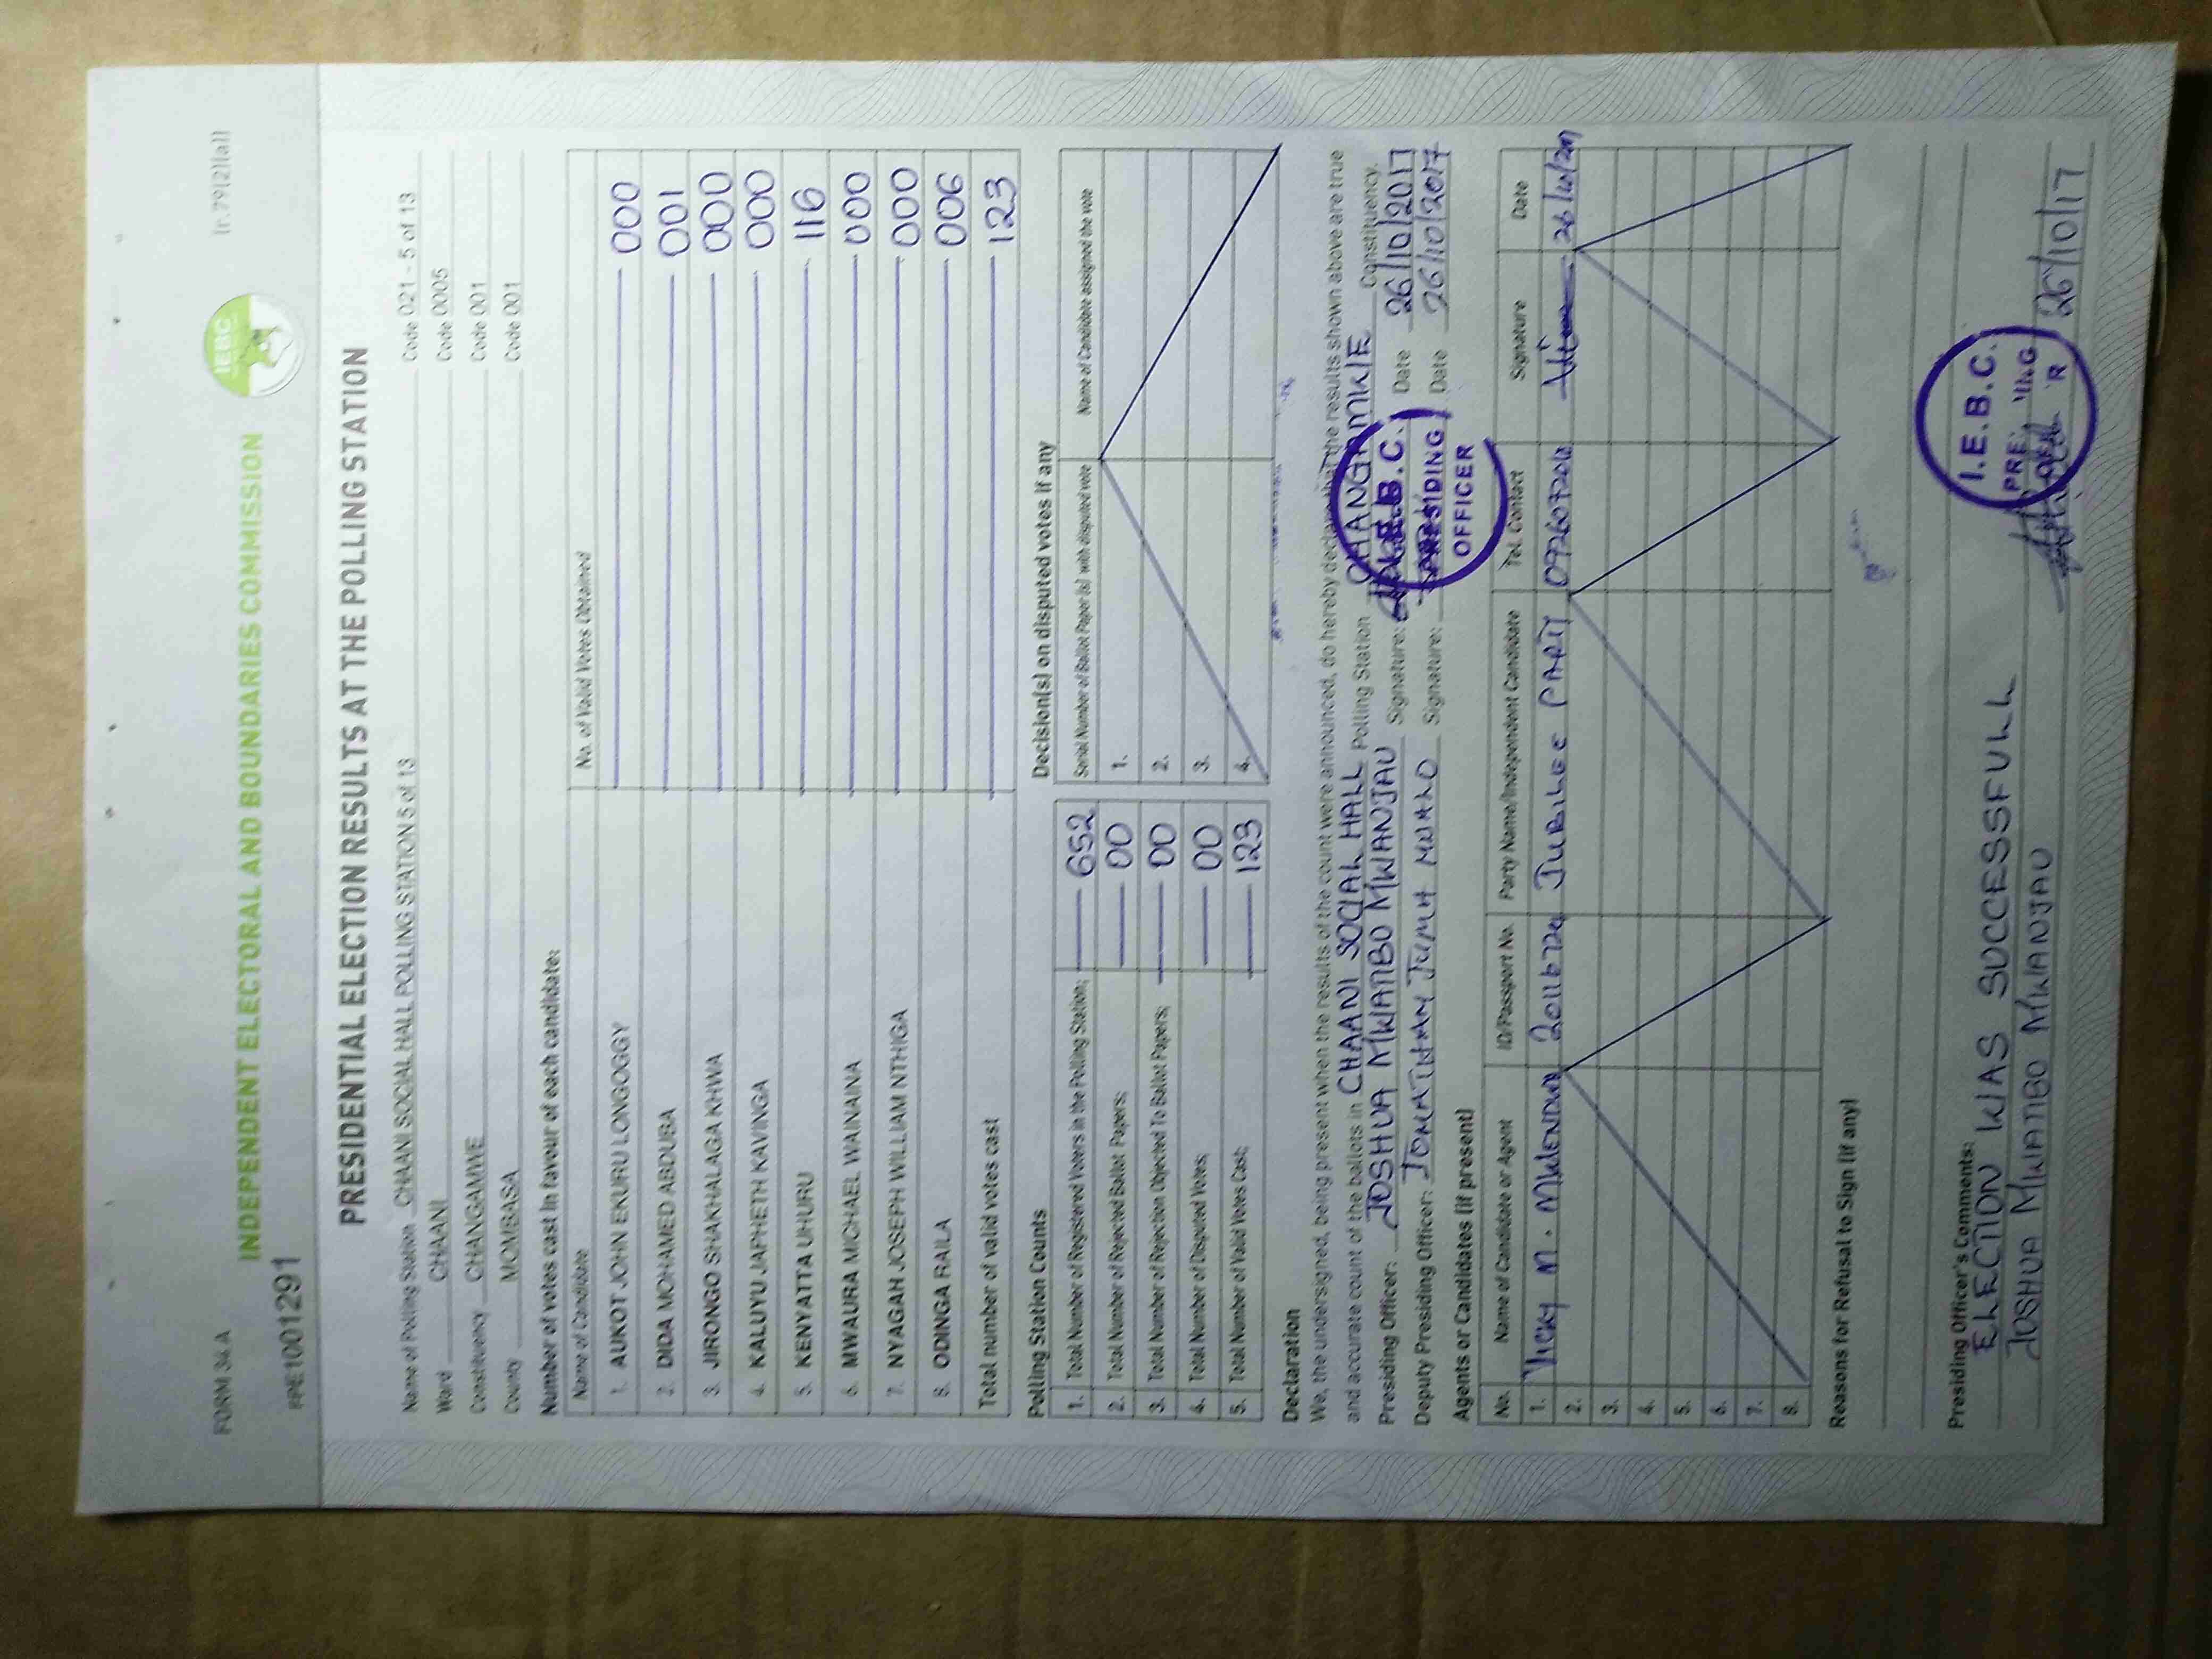 FORM 34A
(r.79(2)(a))
INDEPENDENT ELECTORAL AND BOUNDARIES COMMISSION
IEBC
#PE1001291
PRESIDENTIAL ELECTION RESULTS AT THE POLLING STATION
Name of Polling Station CHAANI SOCIAL HALL POLLING STATION 5 of 13 Code 021 - 5 of 13
Ward CHAANI Code 0005
Constituency CHANGAMWE Code 001
County MOMBASA Code 001
Number of votes cast in favour of each candidate:
Name of Candidate No. of Valid Votes Obtained
1. AUKOT JOHN EKURU LONGOGGY 000
2. DIDA MOHAMED ABDUBA 001
3. JIRONGO SHAKHALAGA KHWA 000
4. KALUYU JAPHETH KAVINGA 000
5. KENYATTA UHURU 116
6. MWAURA MICHAEL WAINAINA 000
7. NYAGAH JOSEPH WILLIAM NTHIGA 000
8. ODINGA RAILA 006
Total number of valid votes cast 123
Polling Station Counts
1. Total Number of Registered Voters in the Polling Station; 652
2. Total Number of Rejected Ballot Papers; 00
3. Total Number of Rejection Objected To Ballot Papers; 00
4. Total Number of Disputed Votes; 00
5. Total Number of Valid Votes Cast; 123
Decision(s) on disputed votes if any
Serial Number of Ballot Paper (s) with disputed vote Name of Candidate assigned the vote
1.
2.
3.
4.
Declaration
We, the undersigned, being present when the results of the count were announced, do hereby declare that the results shown above are true
and accurate count of the ballots in CHAANI SOCIAL HALL Polling Station CHANGAMWE Constituency.
Presiding Officer: JOSHUA MWAMBO MWANJAU Signature: Date 26/10/2017
Deputy Presiding Officer: JONATHAN JUMA MWALO Signature: Date 26/10/2017
I.E.B.C.
PRESIDING
OFFICER
Agents or Candidates (if present)
No. Name of Candidate or Agent ID/Passport No. Party Name/Independent Candidate Tel. Contact Signature Date
1. M. JUBILEE PARTY 26/10/2017
2.
3.
4.
5.
6.
7.
8.
Reasons for Refusal to Sign (if any)
Presiding Officer's Comments:
ELECTION WAS SUCCESSFULL
JOSHUA MWAMBO MWANJAU 26/10/17
I.E.B.C.